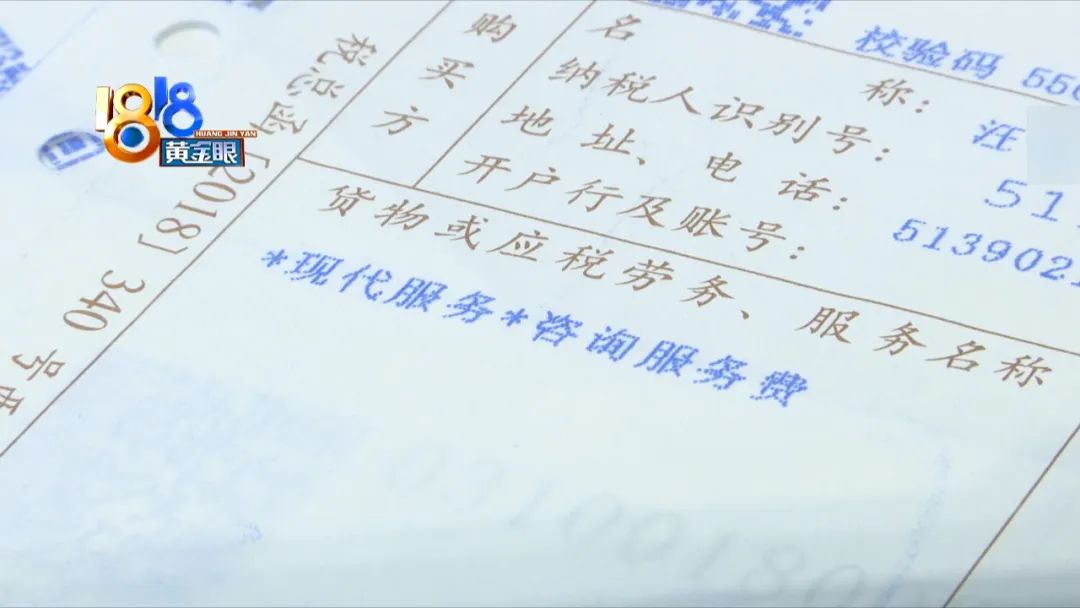 1818
HUANG JIN YAN
黄金眼
税总函[2018] 340 号
购买方
校验码 556
名 称: 汪
纳税人识别号: 51
地 址、电 话: 5139021
开户行及账号:
货物或应税劳务、服务名称
*现代服务*咨询服务费